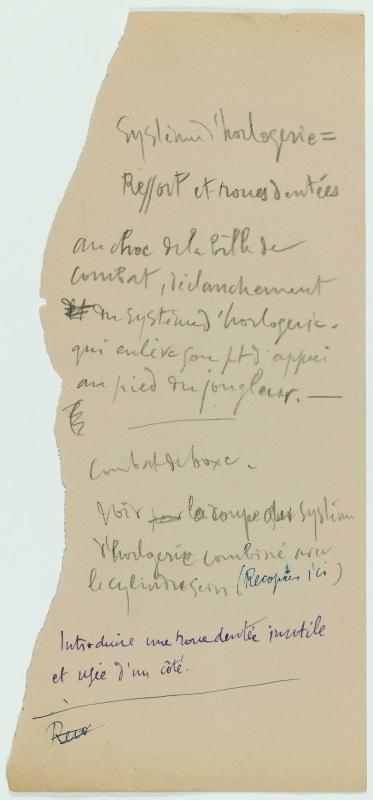 Système d'horlogerie =
Ressort et roues dentées
au choc de la bille de
combat, déclanchement
du système d'horlogerie.
qui enlève son pt d'appui
au pied du jongleur. —
Combat de boxe.
Voir la coupe du système
d'horlogerie combiné avec
le cylindre (Recopiés ici)
Introduire une roue dentée inutile
et usée d'un côté.